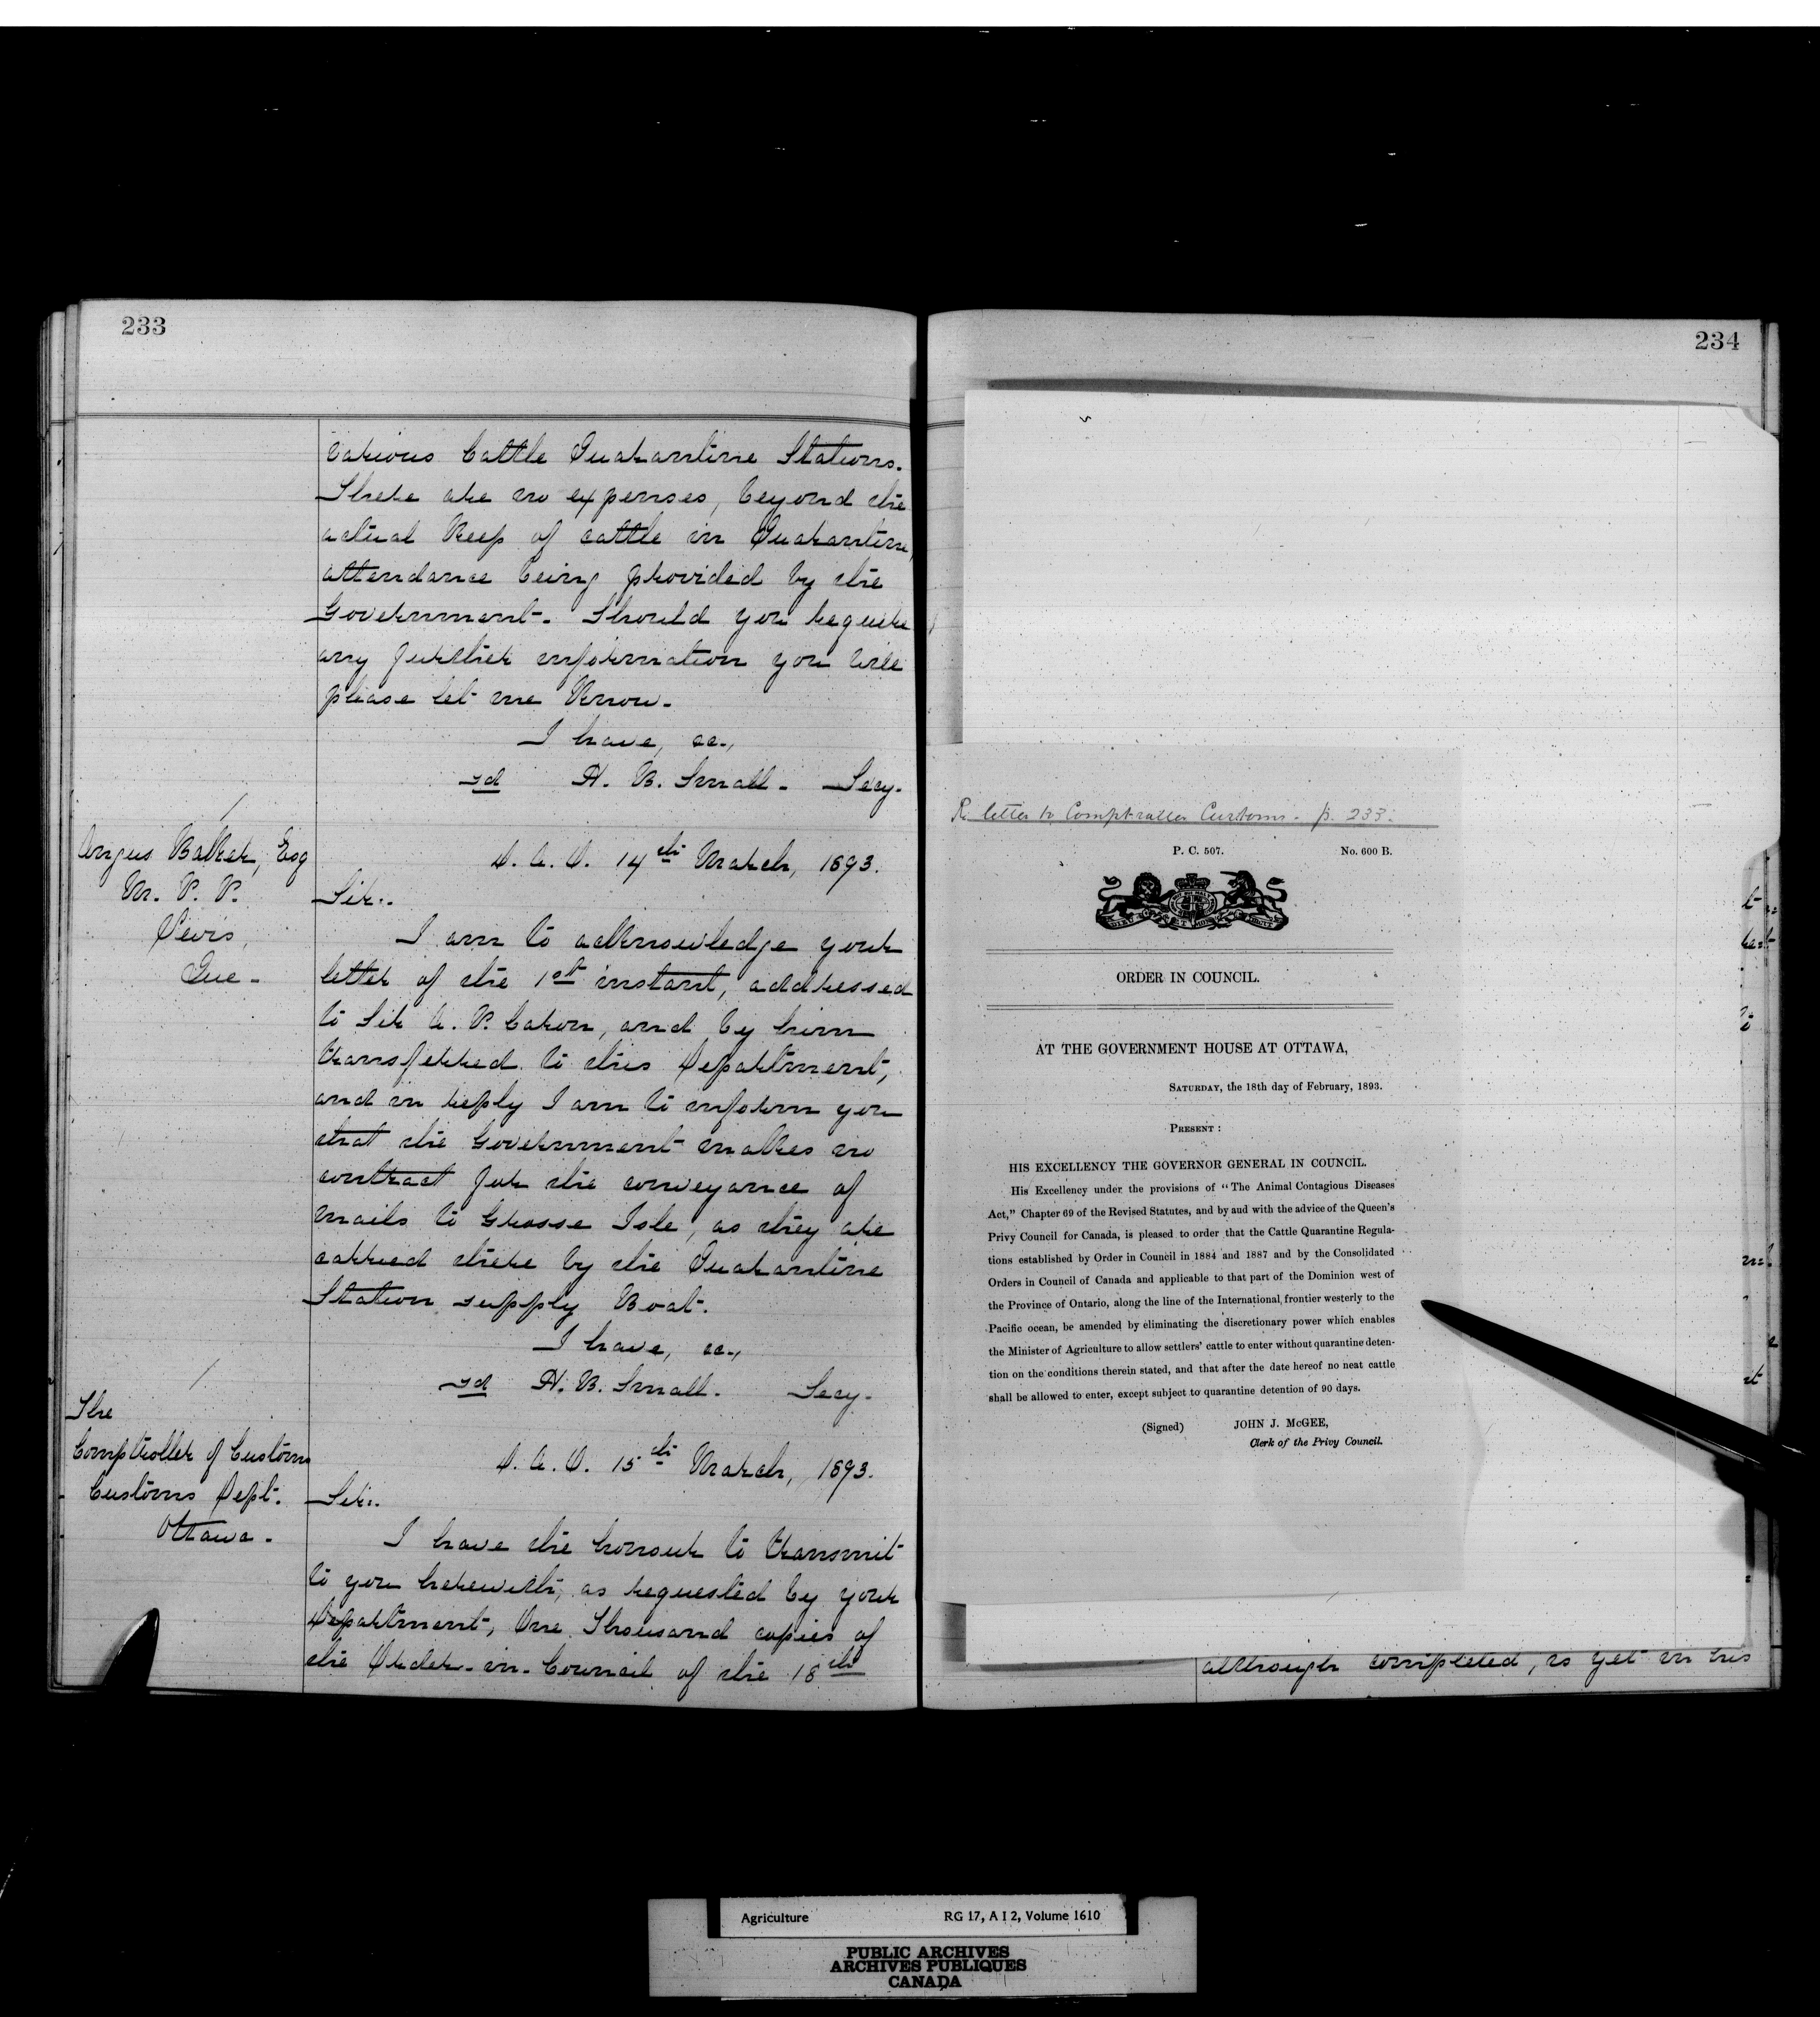 233
various Cattle Quarantine Stations.
There are no expenses, beyond the
actual Keep of cattle in Quarantine,
attendance being provided by the
Government. Should you require
any further information you will
please let me Know.
I have, &c.,
sd H. B. Small. Secy.
Angus Baker, Esq
M. P. P.
Levis,
Que.
D. A. O. 14th March, 1893.
Sir:.
I am to acknowledge your
letter of the 1st instant, addressed
to Sir A. P. Caron, and by him
transferred to this Department,
and in reply I am to inform you
that the Government makes no
contract for the conveyance of
Mails to Grosse Isle, as they are
carried there by the Quarantine
Station supply Boat.
I have, &c.,
sd H. B. Small. Secy.
The
Comptroller of Customs
Customs Dept.
Ottawa.
D. A. O. 15th March, 1893.
Sir:.
I have the honour to transmit
to you herewith, as requested by your
Department, One Thousand copies of
the Order-in-Council of the 18th
234
Re letter to Comptroller Customs - p. 233.
P. C. 507. No. 600 B.
ORDER IN COUNCIL.
AT THE GOVERNMENT HOUSE AT OTTAWA,
SATURDAY, the 18th day of February, 1893.
PRESENT :
HIS EXCELLENCY THE GOVERNOR GENERAL IN COUNCIL.
His Excellency under the provisions of "The Animal Contagious Diseases
Act," Chapter 69 of the Revised Statutes, and by aud with the advice of the Queen's
Privy Council for Canada, is pleased to order that the Cattle Quarantine Regula-
tions established by Order in Council in 1884 and 1887 and by the Consolidated
Orders in Council of Canada and applicable to that part of the Dominion west of
the Province of Ontario, along the line of the International frontier westerly to the
Pacific ocean, be amended by eliminating the discretionary power which enables
the Minister of Agriculture to allow settlers' cattle to enter without quarantine deten-
tion on the conditions therein stated, and that after the date hereof no neat cattle
shall be allowed to enter, except subject to quarantine detention of 90 days.
(Signed) JOHN J. McGEE,
Clerk of the Privy Council.
although completed, is yet in his
Agriculture RG 17, A I 2, Volume 1610
PUBLIC ARCHIVES
ARCHIVES PUBLIQUES
CANADA